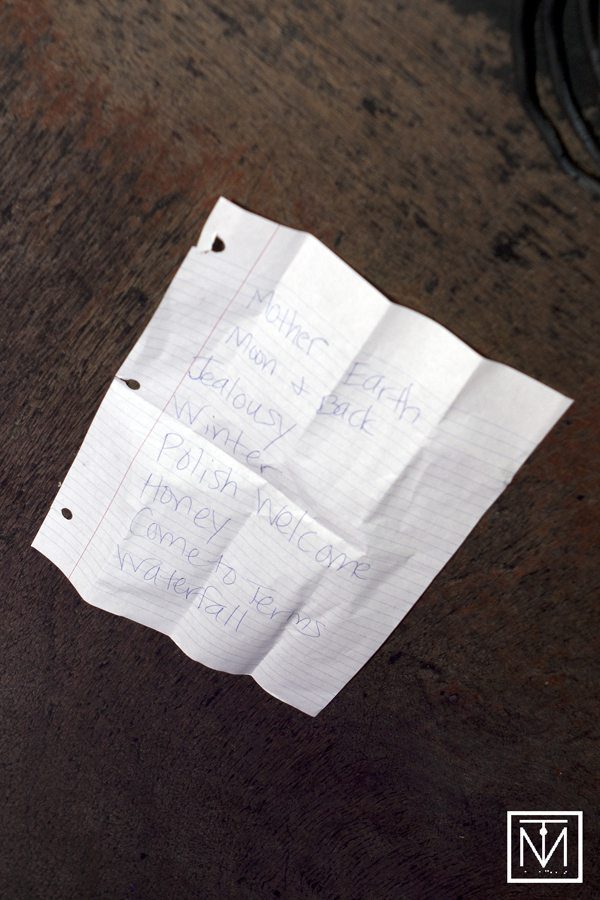 Mother Earth
Moon + Back
Jealousy
Winter
Polish Welcome
Honey
Come to Terms
Waterfall
TM